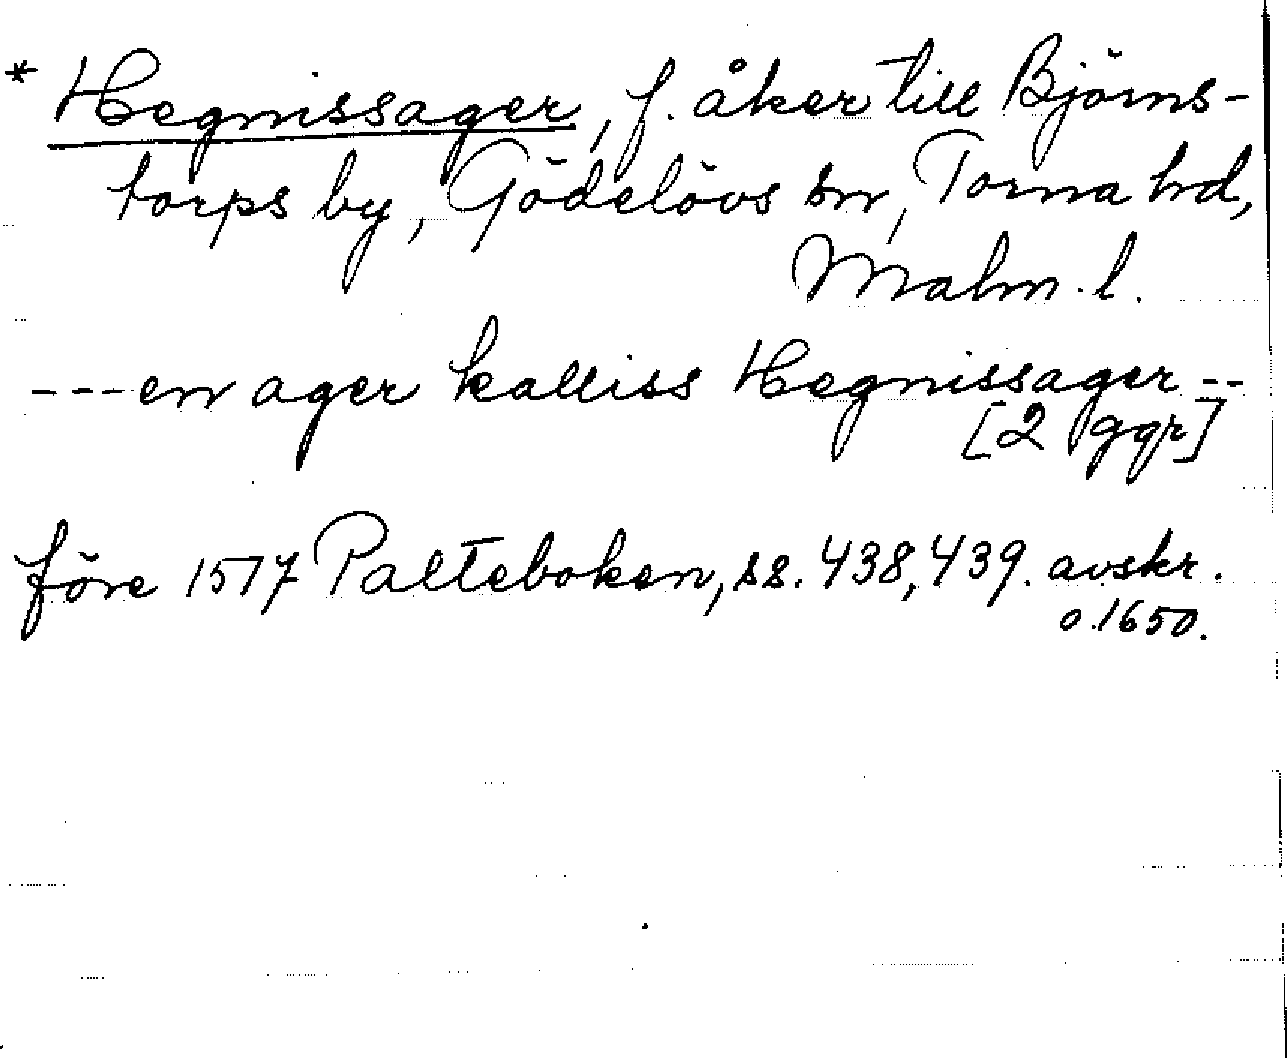 * Hegnissager, f. åker till Björns-
torps by, Gödelövs sn, Torna hd,
Malm. l.
---en ager kalliss Hegnissager --
[2 ggr]
före 1517 Palteboken, ss. 438, 439. avskr.
o. 1650.